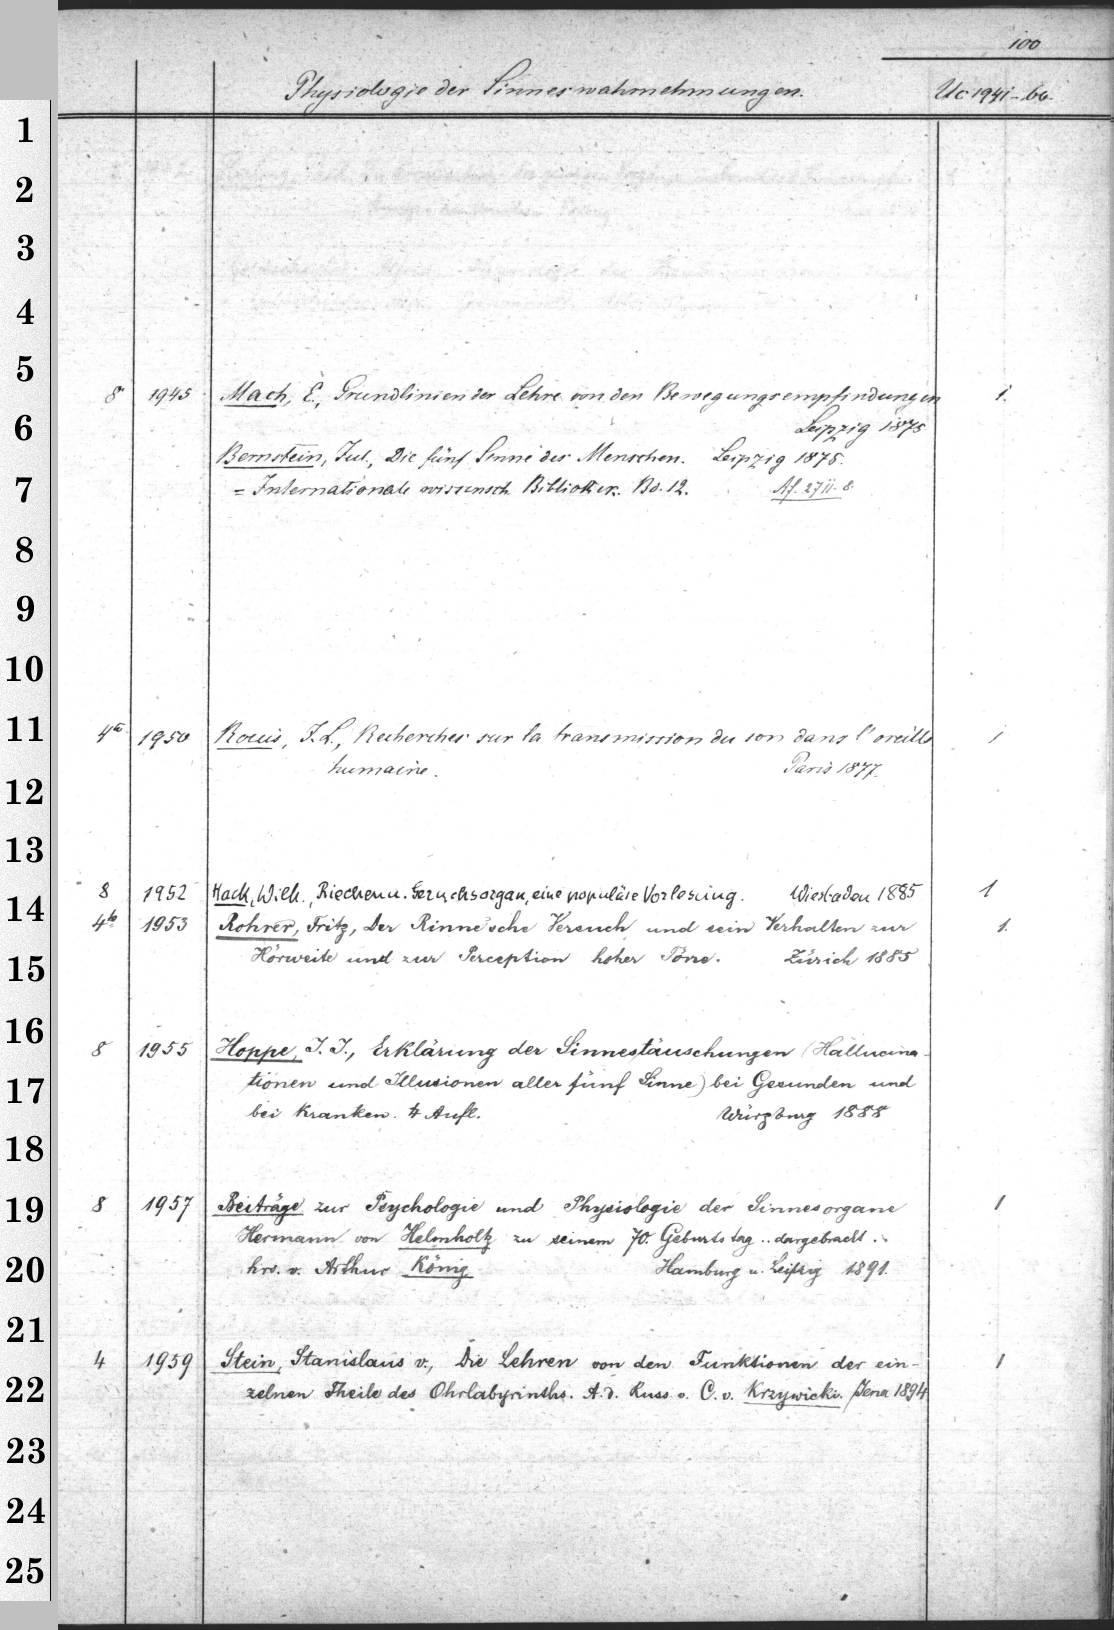 100
Physiologie der Sinneswahrnehmungen. Uc 1941-66.
1
2
3
4
5
8° 1945 Mach, E., Grundlinien der Lehre von den Bewegungsempfindungen 1.
6 Leipzig 1875
Bernstein, Jul., Die fünf Sinne des Menschen. Leipzig 1875.
7 = Internationale wissensch. Bibliothek. Bd. 12. Af. 2711. 8.
8
9
10
11 4to 1950 Rouis, J. L., Recherches sur la transmission du son dans l'oreille 1
humaine. Paris 1877.
12
13
14 8 1952 Hack, Wilh., Riechen u. Geruchsorgan, eine populäre Vorlesung. Wiesbaden 1885 1
4to 1953 Rohrer, Fritz, Der Rinne'sche Versuch und sein Verhalten zur 1.
15 Hörweite und zur Perception hoher Töne. Zürich 1885
16
8 1955 Hoppe, J. J., Erklärung der Sinnestäuschungen (Hallucina-
17 tionen und Illusionen aller fünf Sinne) bei Gesunden und
bei Kranken. 4 Aufl. Würzburg 1888
18
19 8 1957 Beiträge zur Psychologie und Physiologie der Sinnesorgane 1
Hermann von Helmholtz zu seinem 70. Geburtstag .. dargebracht .
20 hrs. v. Arthur König Hamburg u. Leipzig 1891.
21
4 1959 Stein, Stanislaus v., Die Lehren von den Funktionen der ein- 1
22 zelnen Theile des Ohrlabyrinths. A. d. Russ. v. C. v. Krzywicki. Jena 1894
23
24
25